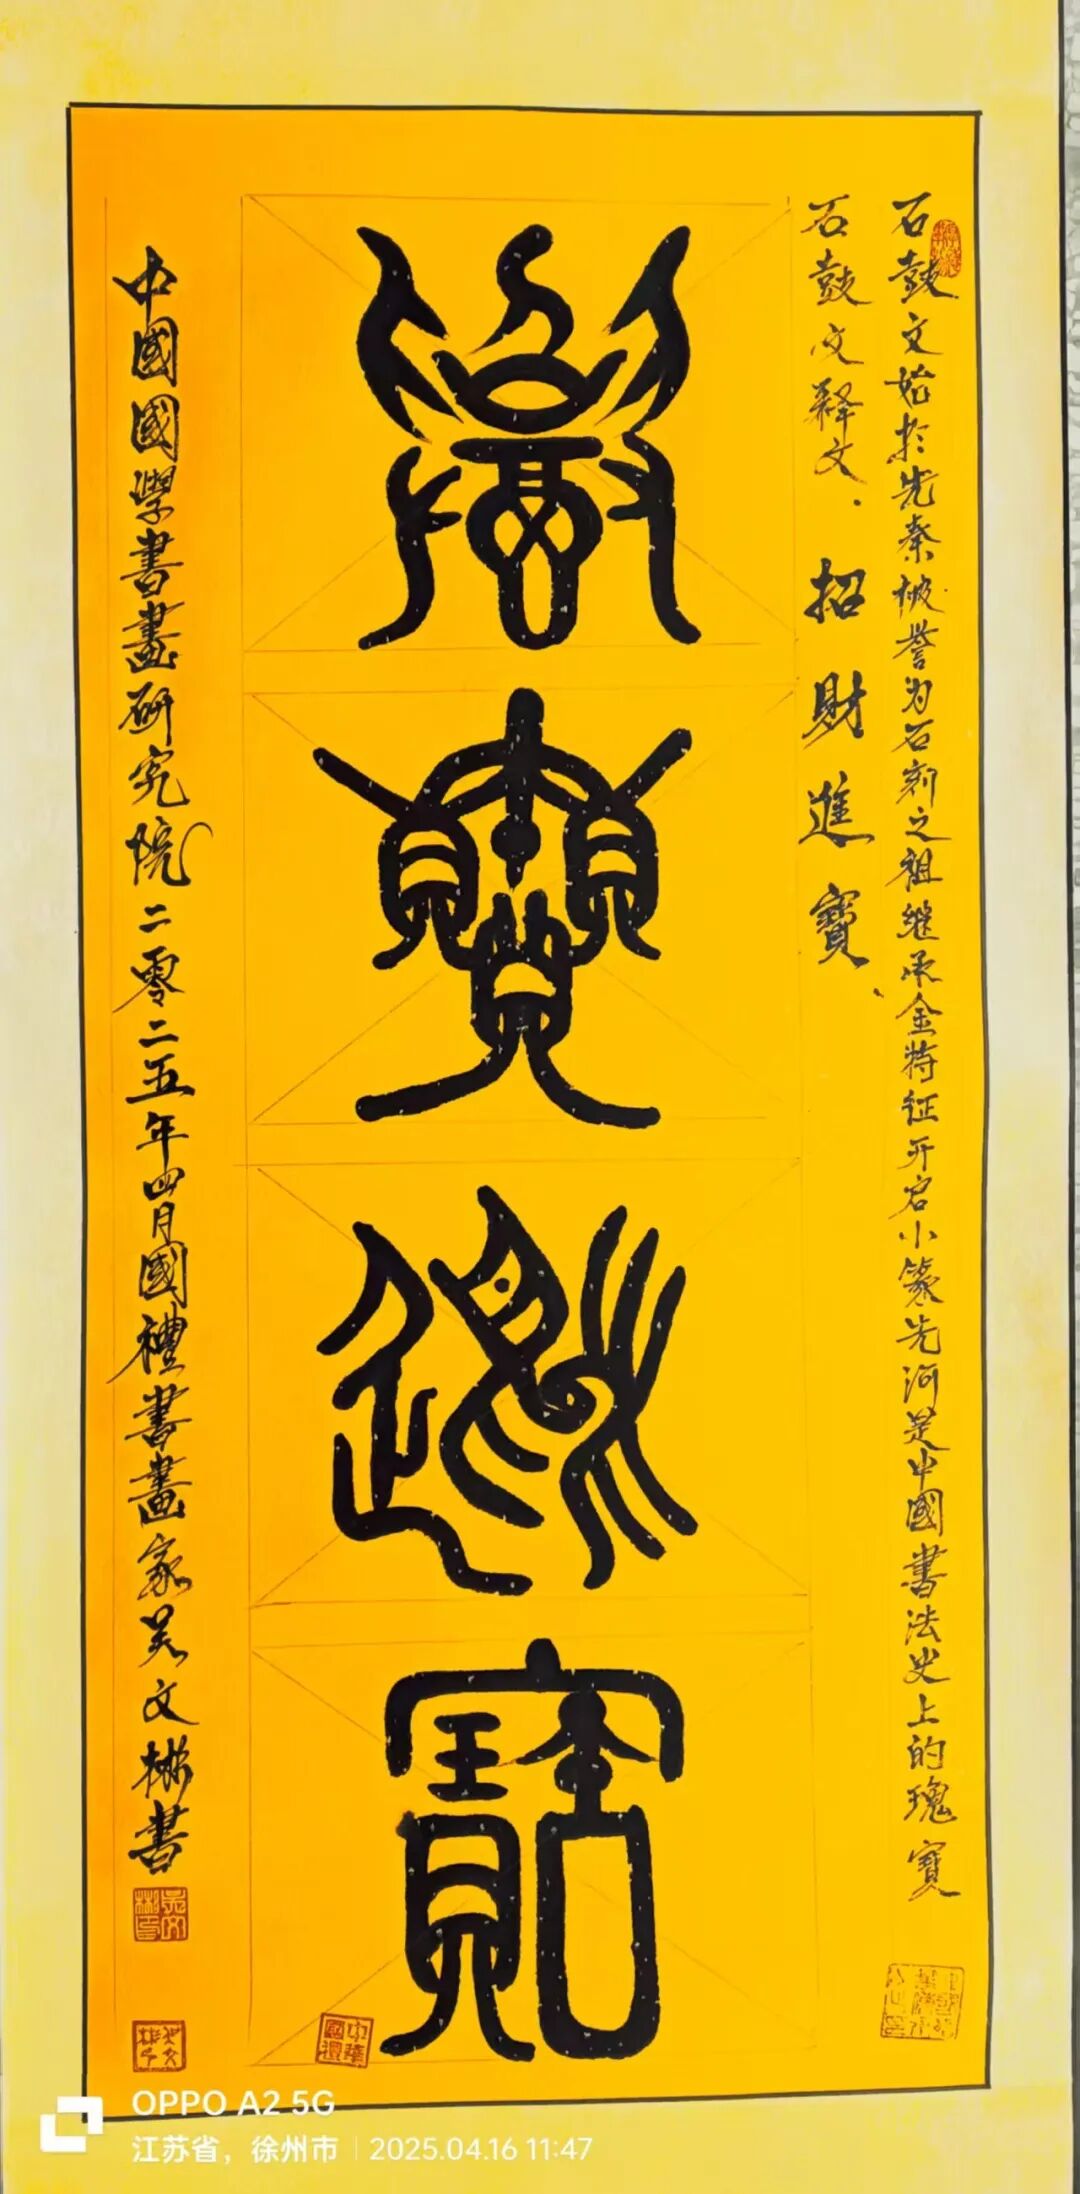 石鼓文始於先秦被誉为石刻之祖继承金特征开启小篆先河是中國書法史上的瑰寶
石鼓文释文．招財進寶、
招財進寶
中國國學書畫研究院二零二五年四月國禮書畫家吴文彬書
中華國禮
OPPO A2 5G
江苏省，徐州市 2025.04.16 11:47